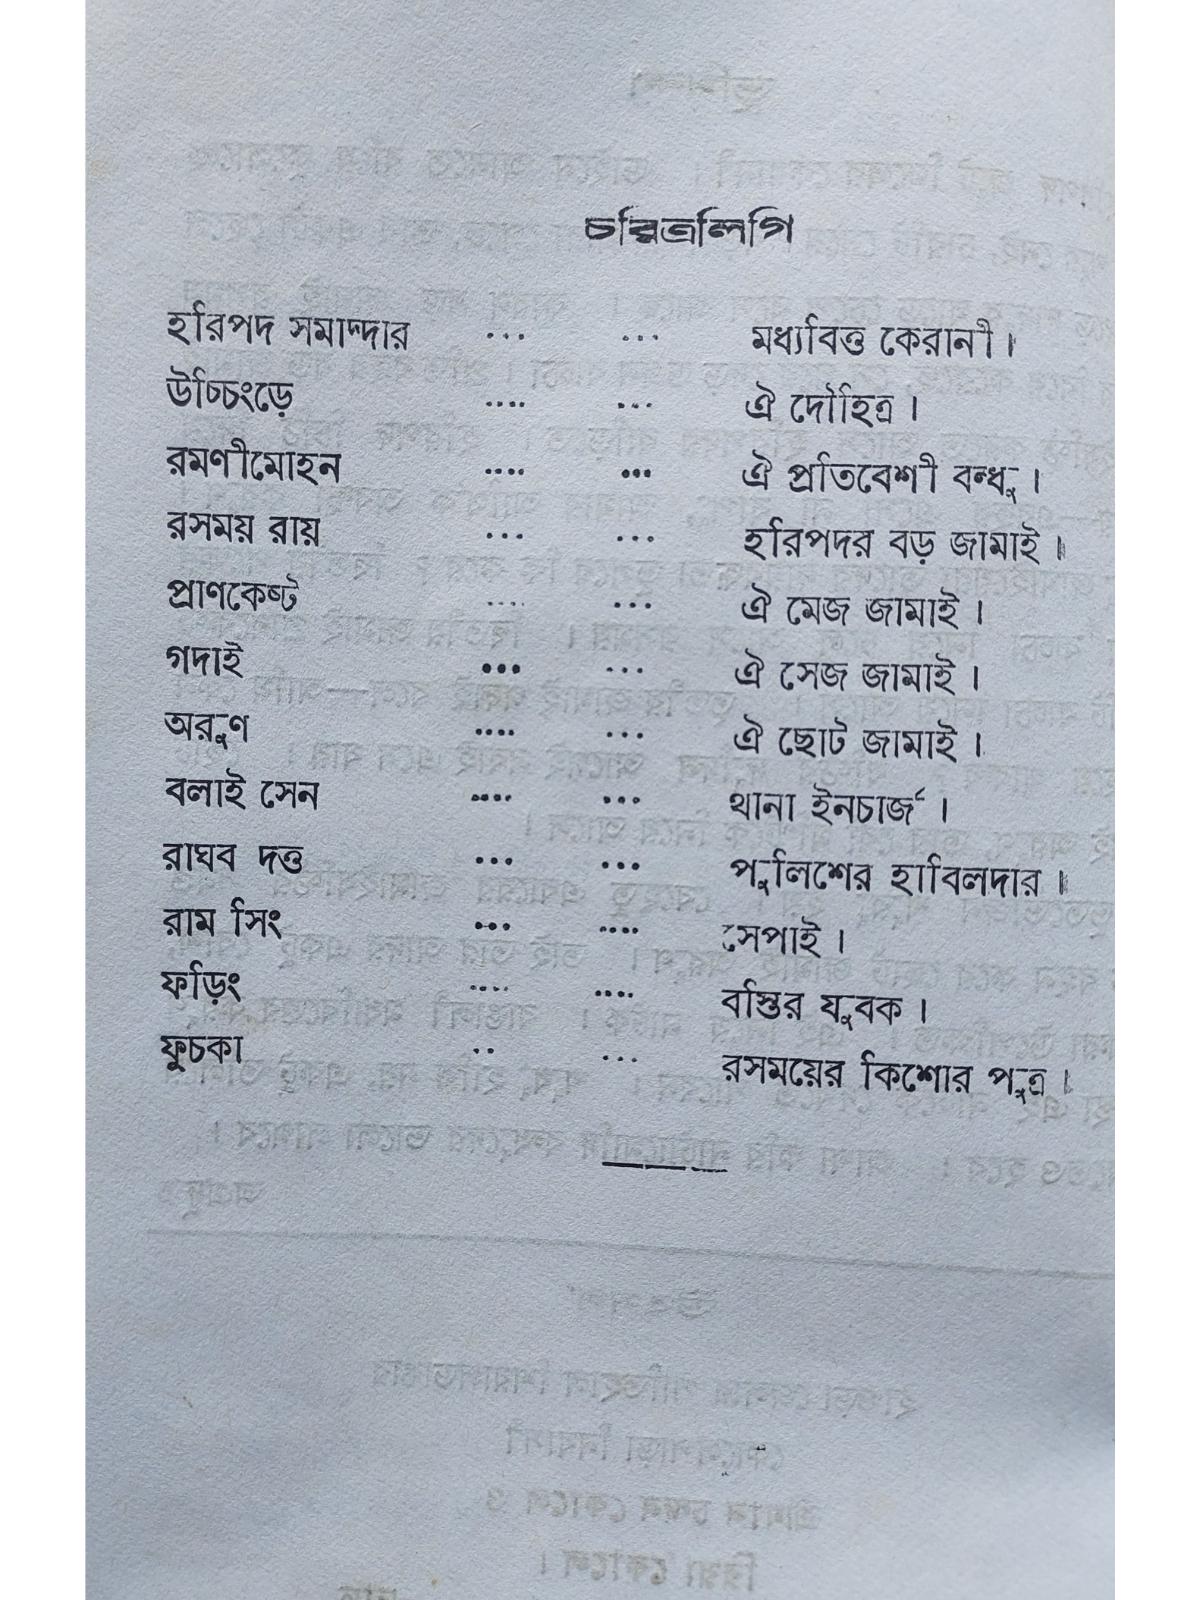 চরিত্রলিপি
হরিপদ সমাদ্দার ... ... মধ্যবিত্ত কেরানী।
উচ্চিংড়ে .... ... ঐ দৌহিত্র।
রমণীমোহন .... ... ঐ প্রতিবেশী বন্ধু।
রসময় রায় ... ... হরিপদর বড় জামাই।
প্রাণকেষ্ট .... ... ঐ মেজ জামাই।
গদাই ... ... ঐ সেজ জামাই।
অরুণ .... ... ঐ ছোট জামাই।
বলাই সেন .... ... থানা ইনচার্জ।
রাঘব দত্ত ... ... পুলিশের হাবিলদার।
রাম সিং ... .... সেপাই।
ফড়িং .... .... বস্তির যুবক।
ফুচকা .. ... রসময়ের কিশোর পুত্র।